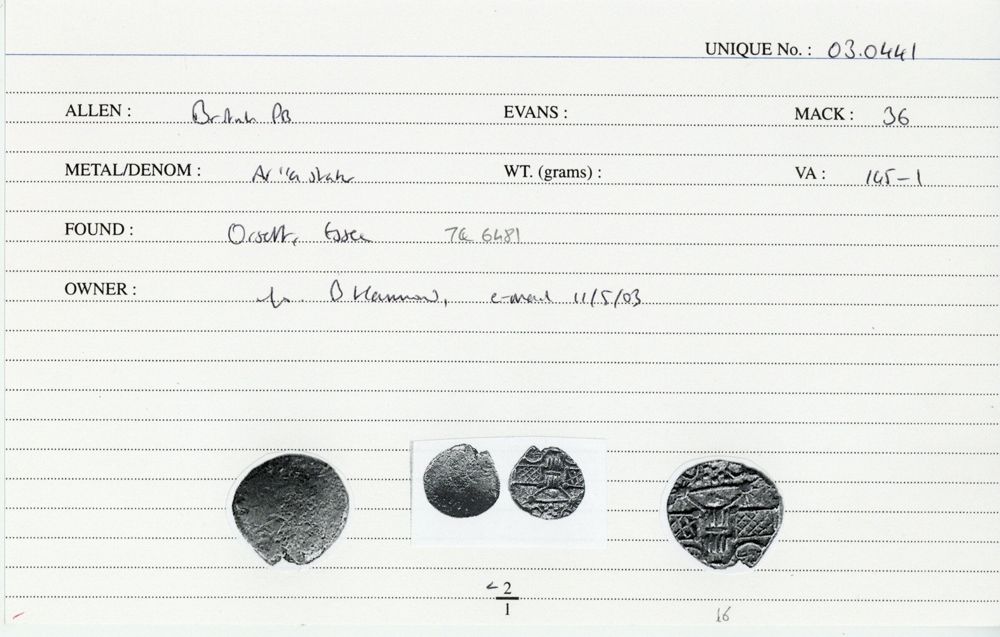 UNIQUE No. : 03.0441
ALLEN : British PB EVANS : MACK : 36
METAL/DENOM : WT. (grams) : VA : 145-1
FOUND : Orsett, Essex TQ 6481
OWNER : e-mail 11/5/03
2
1
16